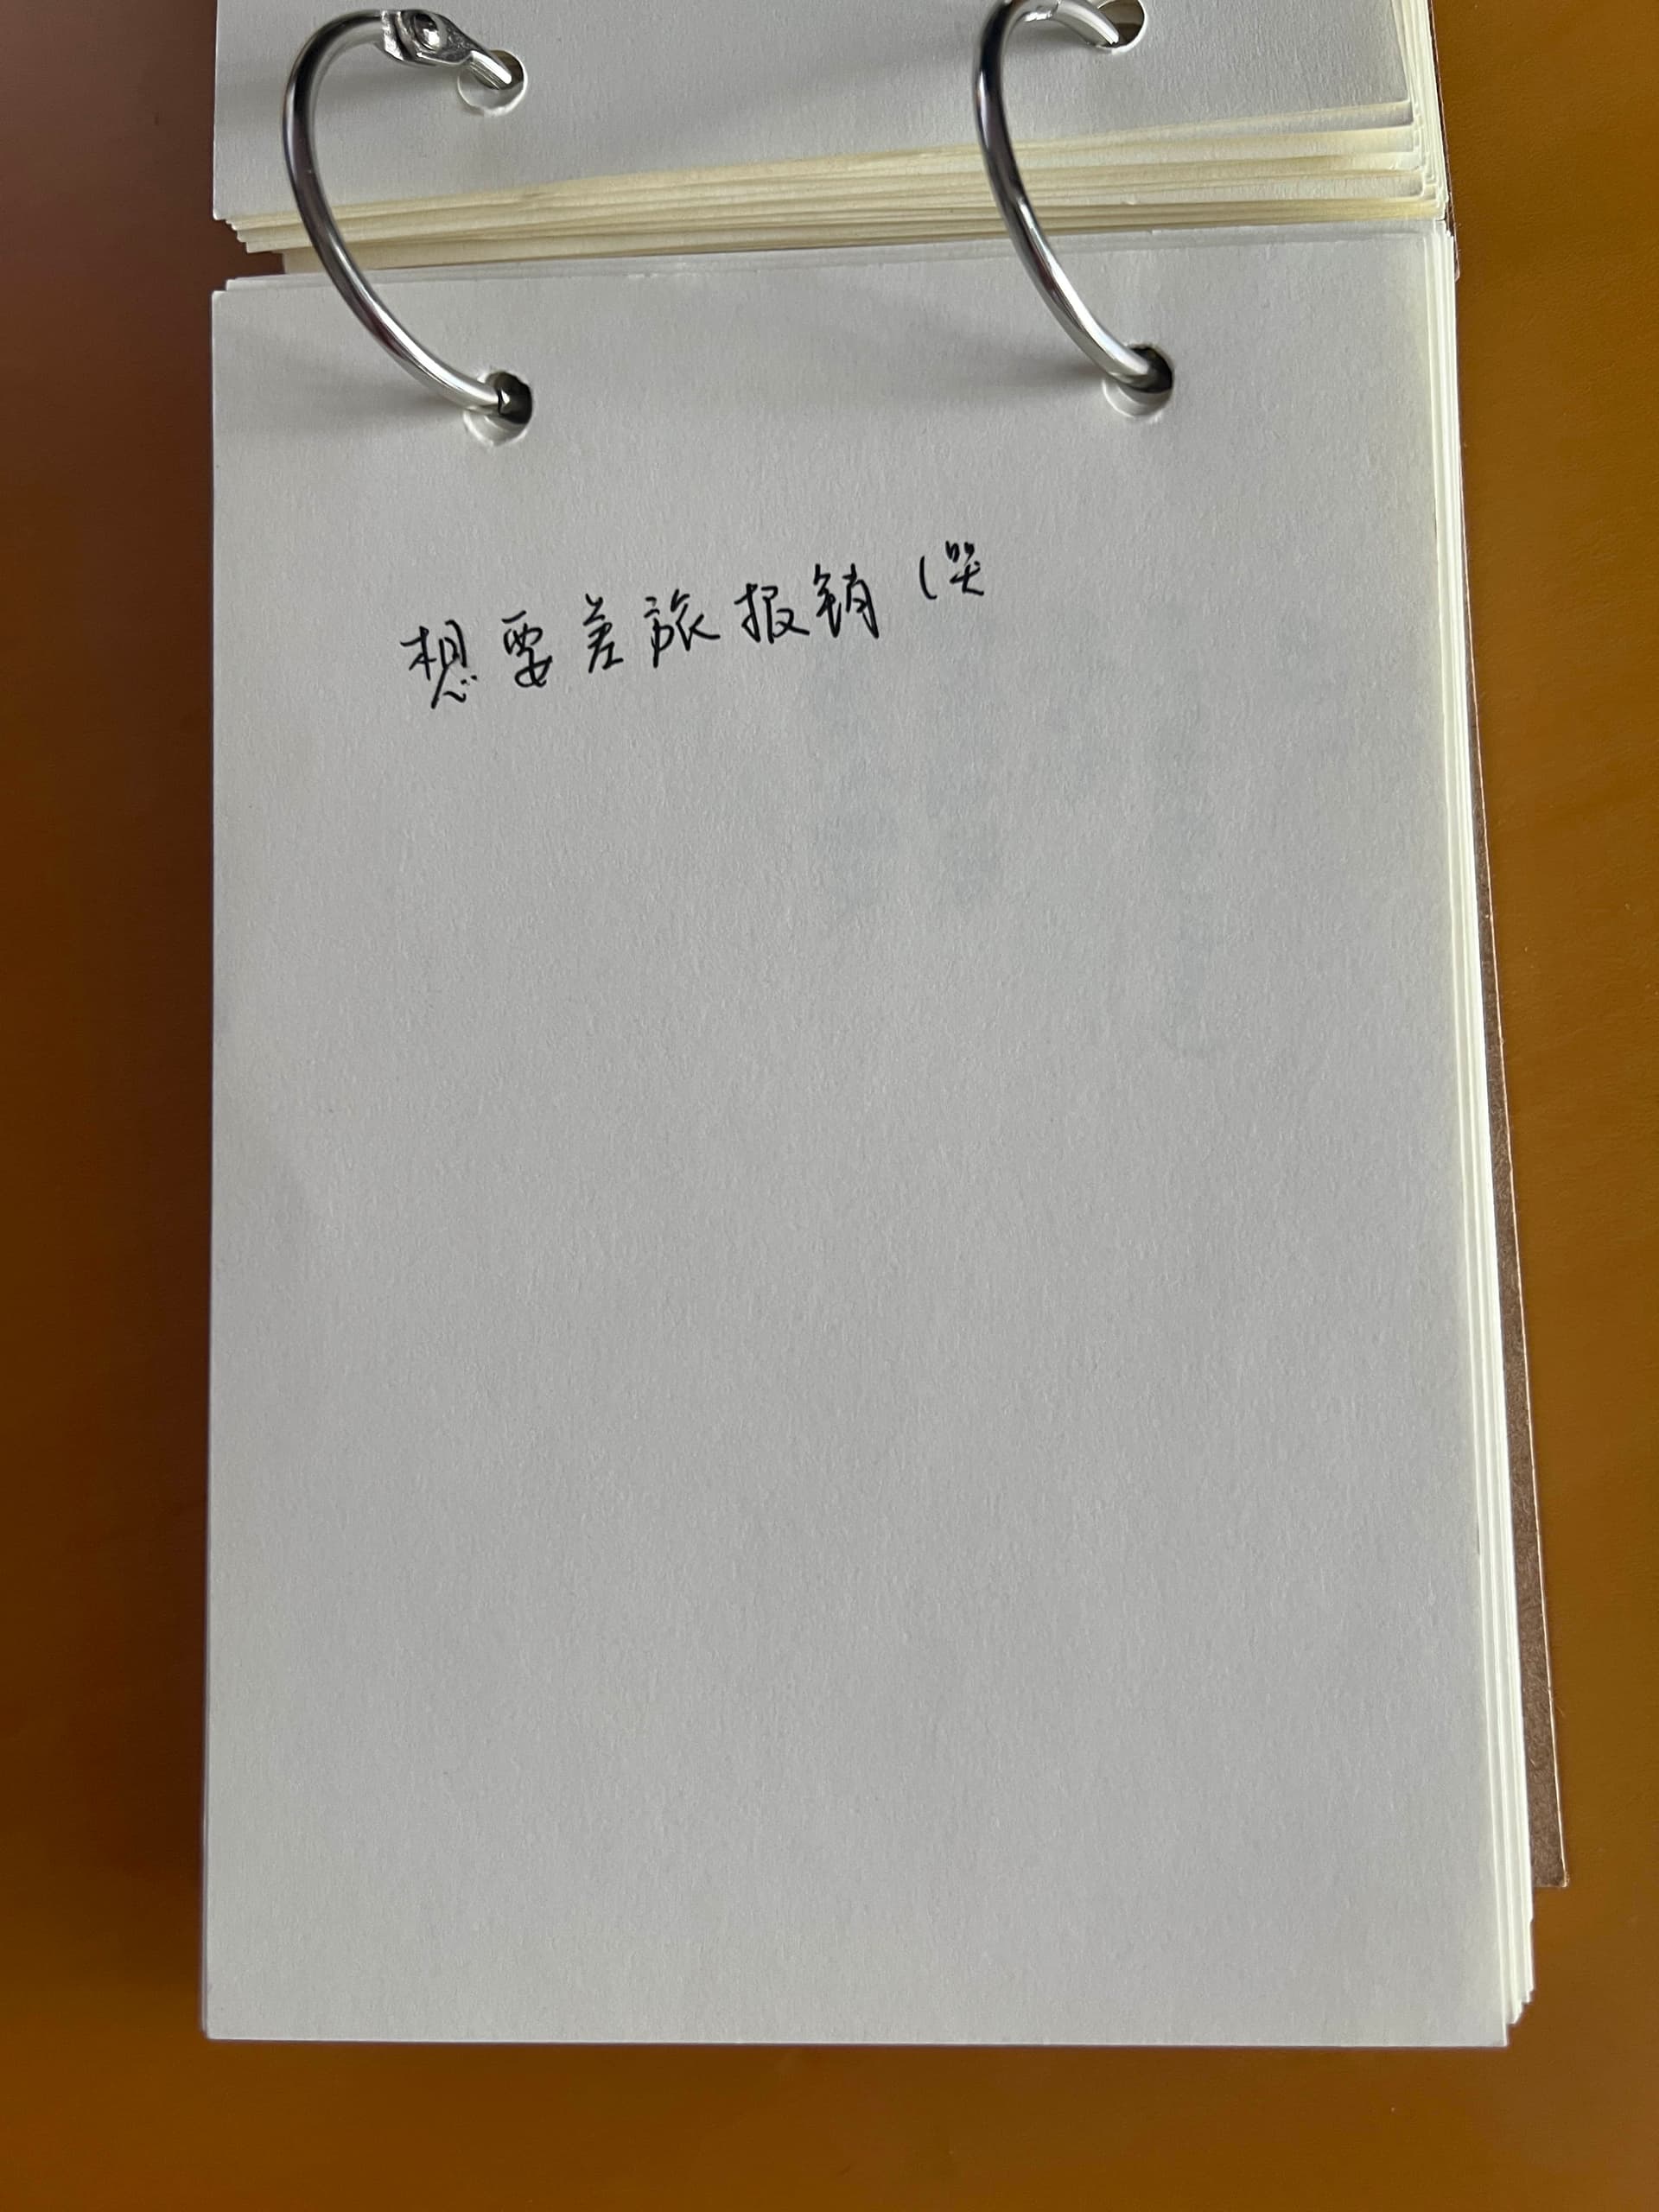 想要差旅报销（哭